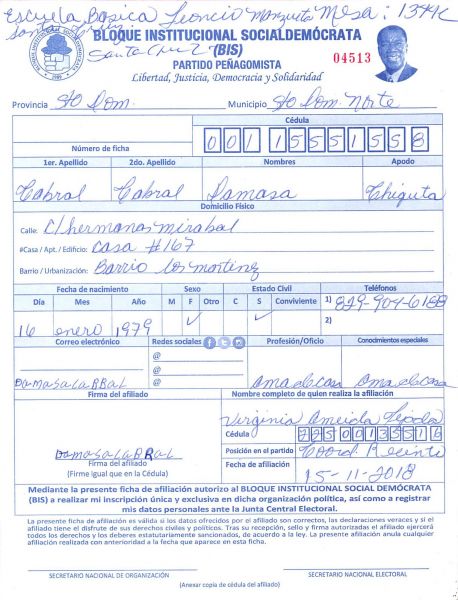 Escuela Basica Leoncio Manzueta Mesa: 1344C
Santa Cruz 2
BLOQUE INSTITUCIONAL SOCIALDEMÓCRATA
(BIS)
PARTIDO PEÑAGOMISTA
04513
Libertad, Justicia, Democracia y Solidaridad
Provincia Sto Dom. Municipio Sto Dom. Norte
Cédula
Número de ficha 001 1555155 8
1er. Apellido 2do. Apellido Nombres Apodo
Cabral Cabral Damasa Chiquita
Domicilio Físico
Calle: C/ hermanas mirabal
#Casa / Apt. / Edificio: Casa #167
Barrio / Urbanización: Barrio los martinez
Fecha de nacimiento Sexo Estado Civil Teléfonos
Día Mes Año M F Otro C S Conviviente 1) 829-904-6188
16 enero 1979 ✓ ✓ 2)
Correo electrónico Redes sociales Profesión/Oficio Conocimientos especiales
@
@
@
DamasaCabRaL Ama de casa Ama de casa
Firma del afiliado Nombre completo de quien realiza la afiliación
Virginia Almeida Tejada
Cédula 22500135516
DamasaCabRaL
Posición en el partido Coord. Recinto
Firma del afiliado
(Firme igual que en la Cédula)
Fecha de afiliación 15-11-2018
Mediante la presente ficha de afiliación autorizo al BLOQUE INSTITUCIONAL SOCIAL DEMÓCRATA
(BIS) a realizar mi inscripción única y exclusiva en dicha organización política, así como a registrar
mis datos personales ante la Junta Central Electoral.
La presente ficha de afiliación es válida si los datos ofrecidos por el afiliado son correctos, las declaraciones veraces y si el
afiliado tiene el disfrute de sus derechos civiles y políticos. Tras su recepción, sello y firma autorizadas el afiliado ejercerá
todos los derechos y los deberes estatutariamente sancionados, de acuerdo a la ley. La presente afiliación anula cualquier
afiliación realizada con anterioridad a la fecha que aparece en esta ficha.
SECRETARIO NACIONAL DE ORGANIZACIÓN SECRETARIO NACIONAL ELECTORAL
(Anexar copia de cédula del afiliado)